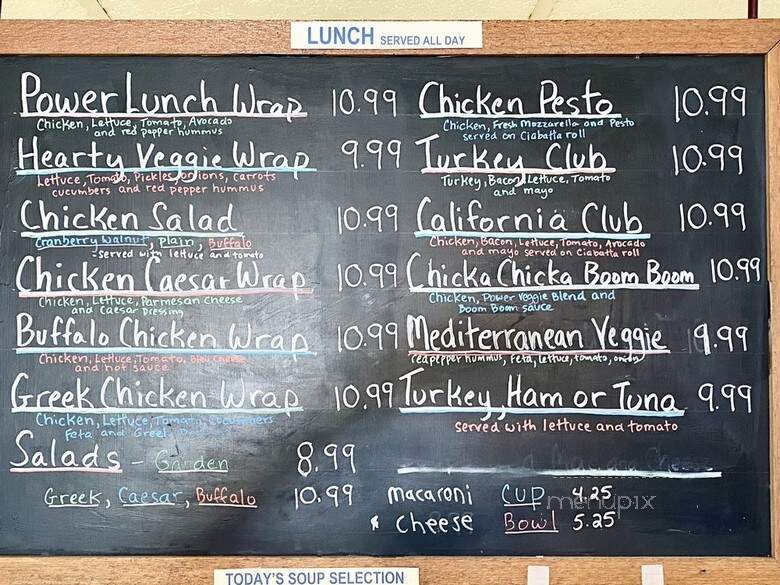 LUNCH SERVED ALL DAY
Power Lunch Wrap 10.99
Chicken, Lettuce, Tomato, Avocado
and red pepper hummus
Hearty Veggie Wrap 9.99
Lettuce, Tomato, Pickles, onions, carrots
cucumbers and red pepper hummus
Chicken Salad 10.99
Cranberry Walnut, Plain, Buffalo
-Served with lettuce and tomato
Chicken Caesar Wrap 10.99
Chicken, Lettuce, Parmesan Cheese
and Caesar Dressing
Buffalo Chicken Wrap 10.99
Chicken, Lettuce, Tomato, Bleu Cheese
and hot sauce
Greek Chicken Wrap 10.99
Chicken, Lettuce, Tomato, Cucumbers
Feta and Greek
Salads - Garden 8.99
Greek, Caesar, Buffalo 10.99
Chicken Pesto 10.99
Chicken, Fresh Mozzarella and Pesto
served on Ciabatta roll
Turkey Club 10.99
Turkey, Bacon, Lettuce, Tomato
and mayo
California Club 10.99
Chicken, Bacon, Lettuce, Tomato, Avocado
and mayo served on Ciabatta roll
Chicka Chicka Boom Boom 10.99
Chicken, Power Veggie Blend and
Boom Boom sauce
Mediterranean Veggie 9.99
redpepper hummus, feta, lettuce, tomato, onion
Turkey, Ham or Tuna 9.99
served with lettuce and tomato
macaroni Cup 4.25
& cheese Bowl 5.25
menupix
TODAY'S SOUP SELECTION